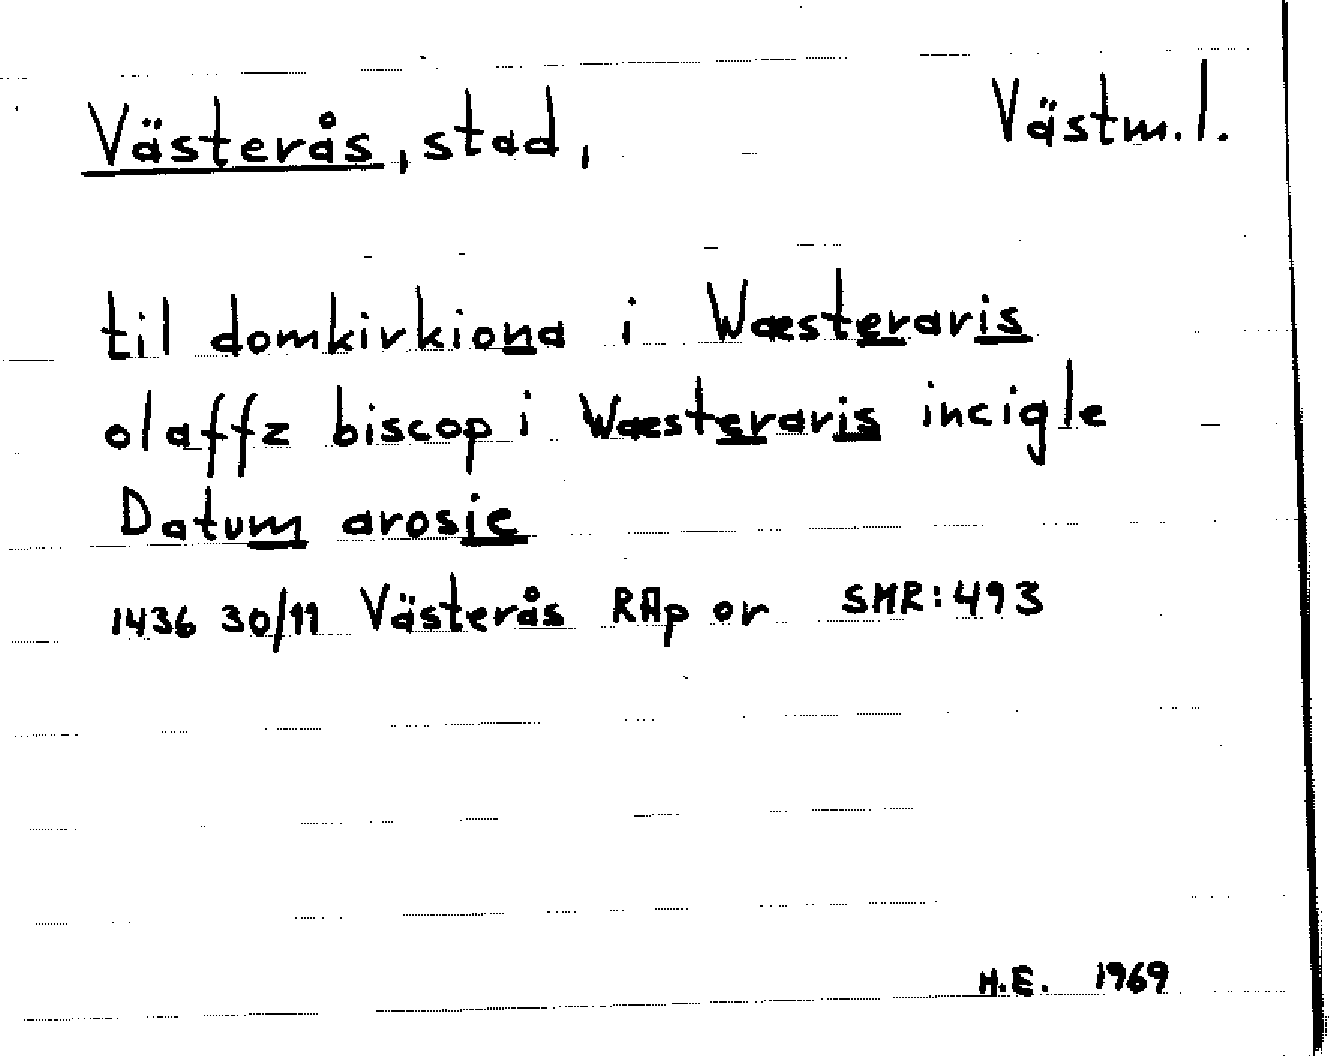 Västerås, stad, Västm.l.
til domkirkiona i Wæsteraris
olaffz biscop i Wæsteraris incigle
Datum arosie
1436 30/11 Västerås RAp or SMR:493
H.E. 1969